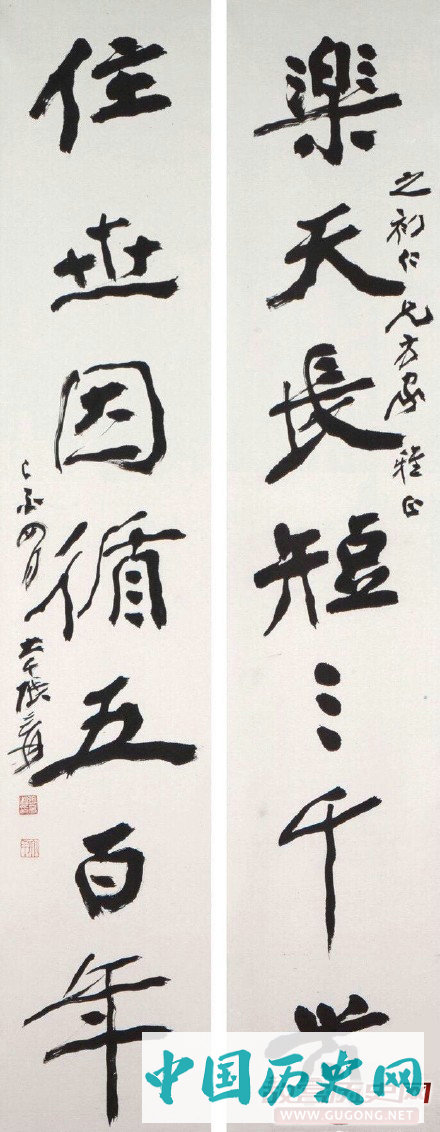 楽天長短三千
之初仁兄方家 雅正
住世因循五百年
己酉四月 大千張爰
中国历史网
WWW.GUGONG.NET